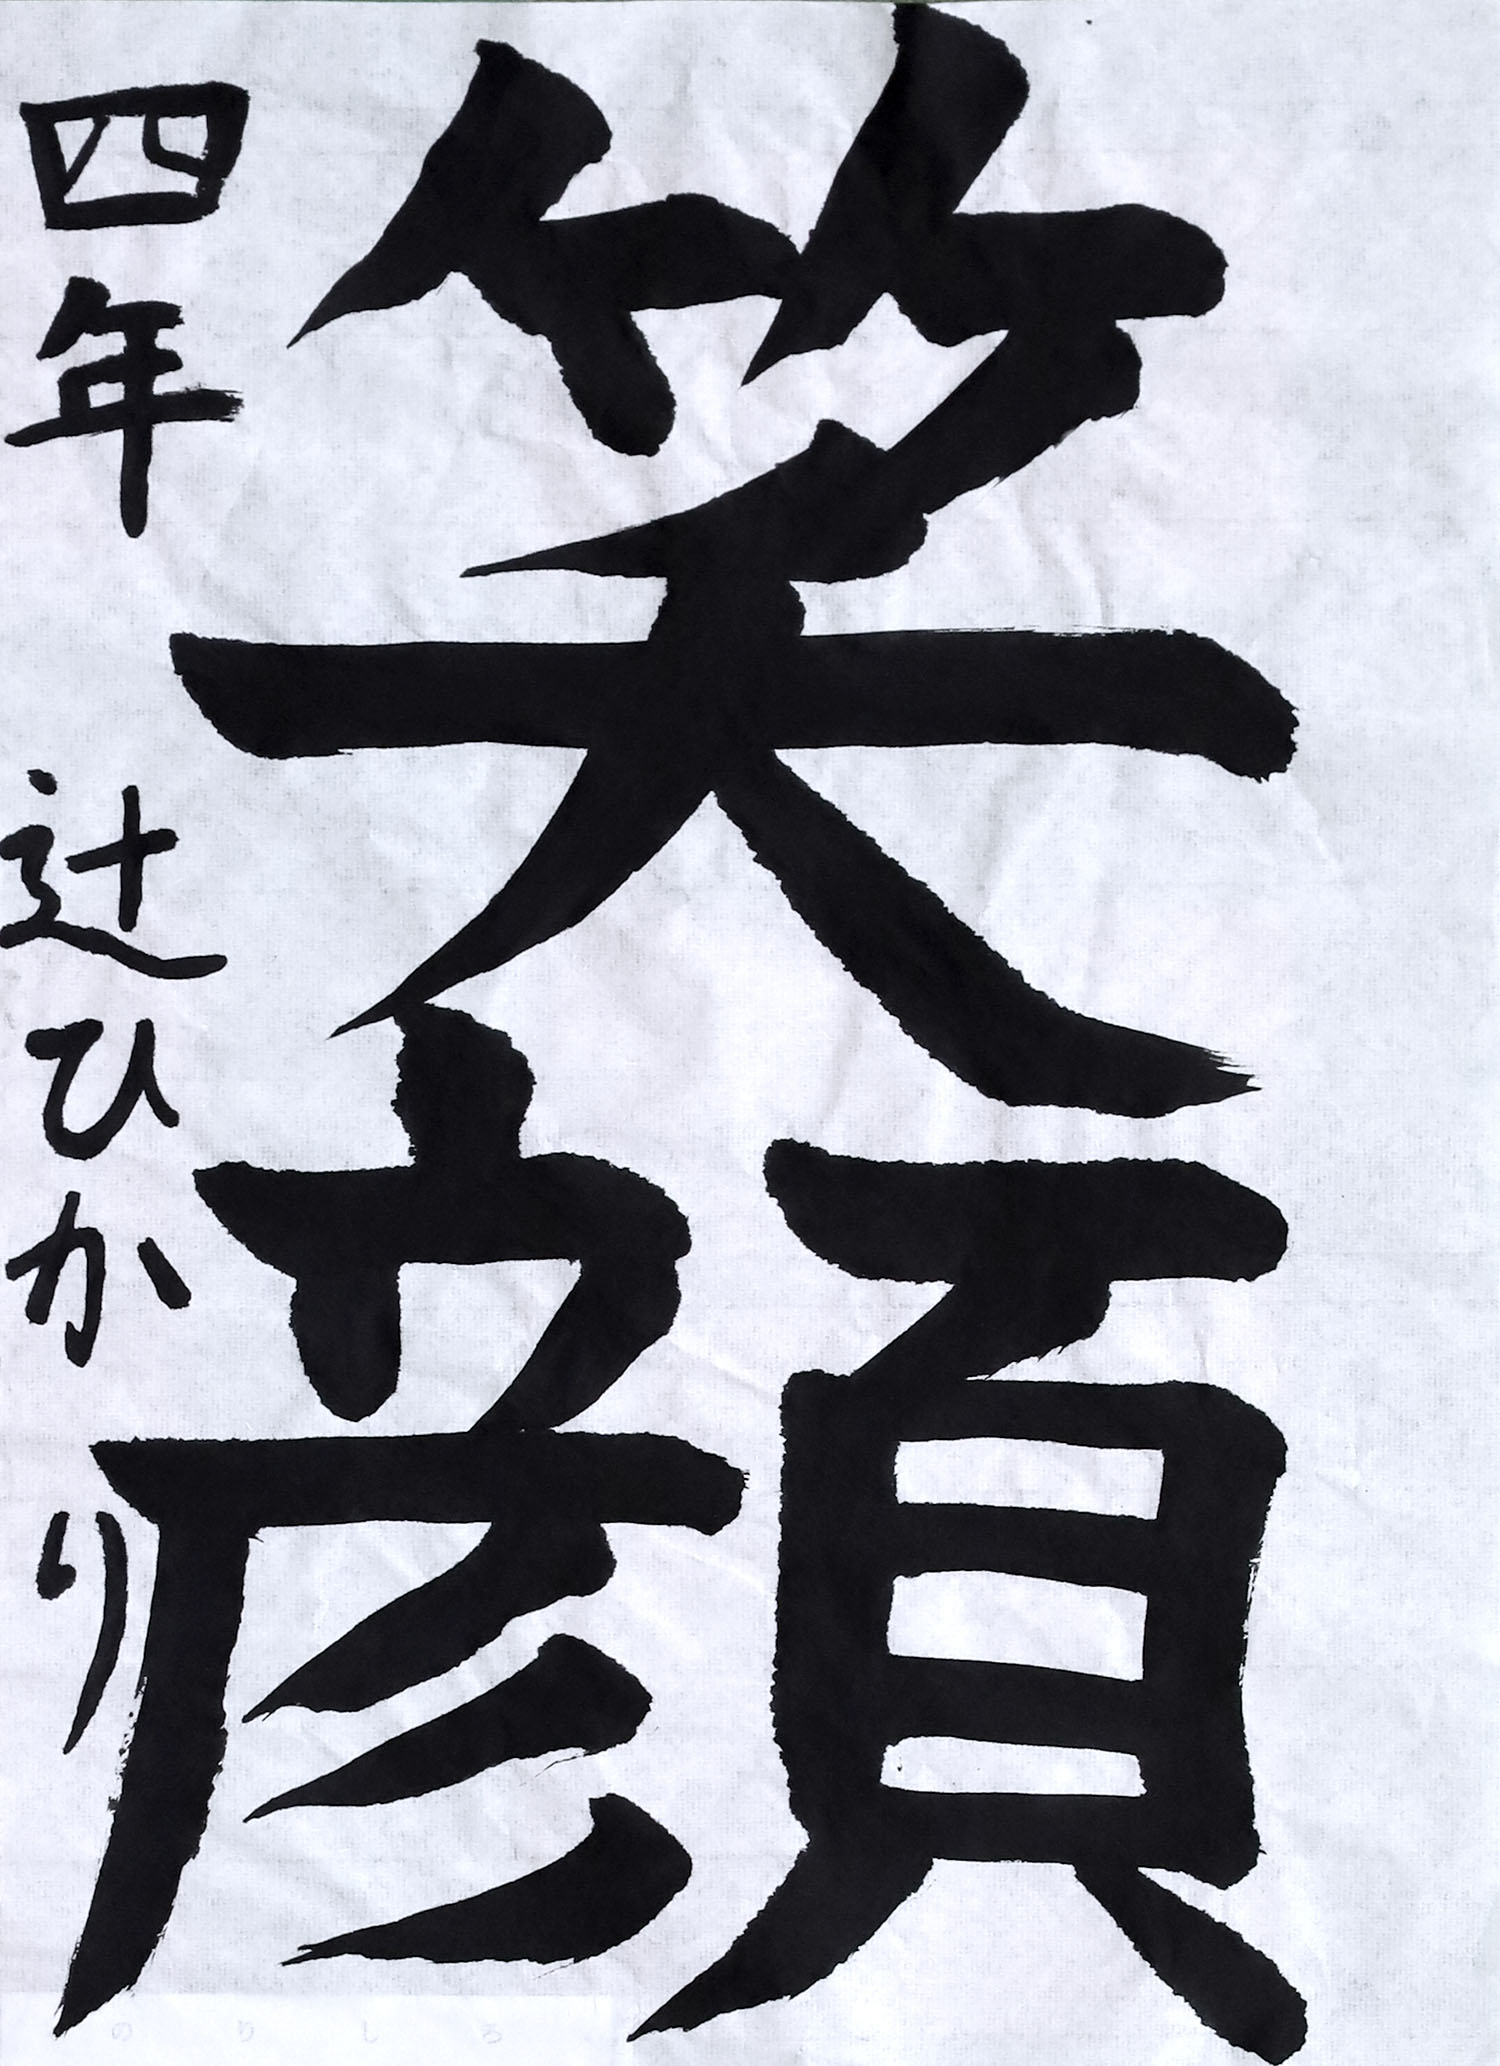 笑顔
四年 辻ひかり
のりしろ